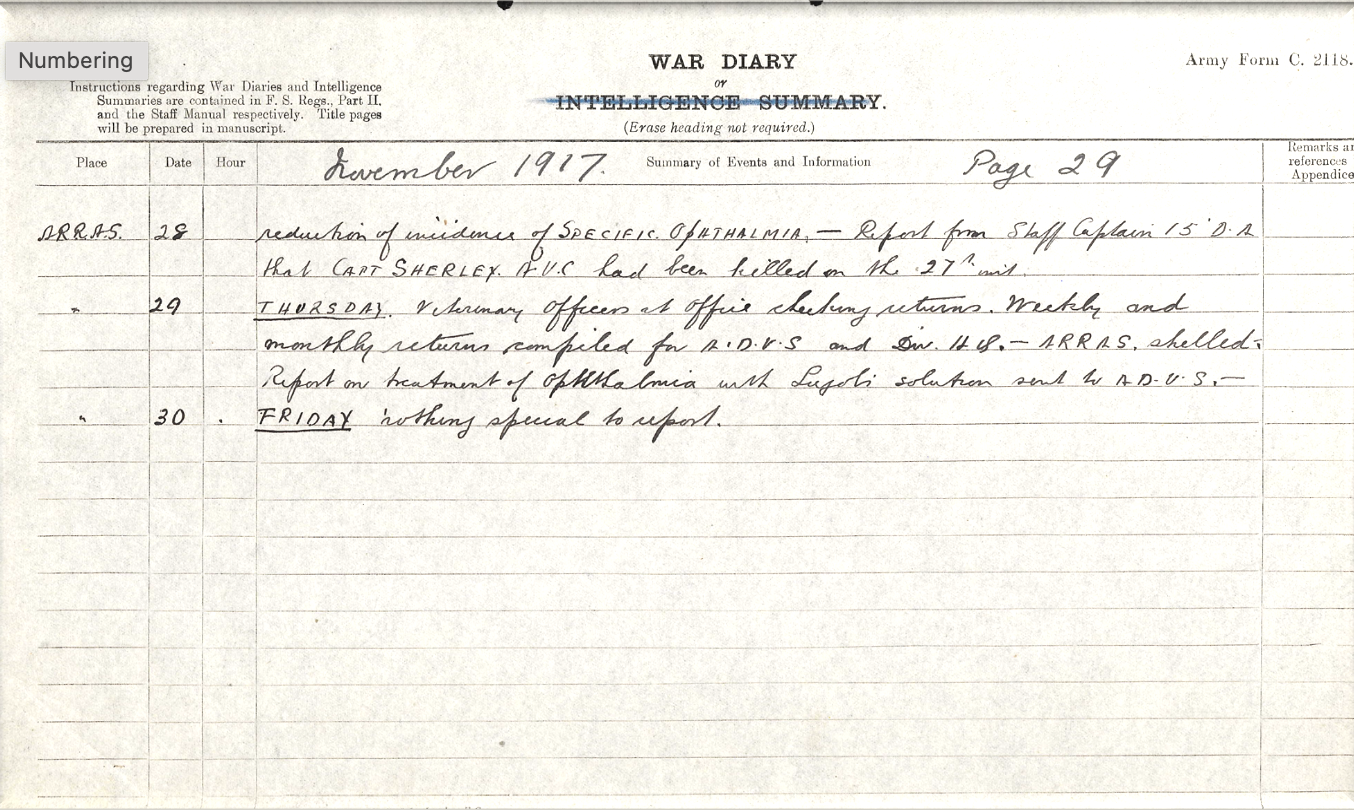 Numbering
WAR DIARY
Army Form C. 2118.
or
Instructions regarding War Diaries and Intelligence
Summaries are contained in F. S. Regs., Part II.
and the Staff Manual respectively. Title pages
will be prepared in manuscript.
INTELLIGENCE SUMMARY.
(Erase heading not required.)
Place Date Hour November 1917. Summary of Events and Information Page 29
Remarks and
references
Appendice
ARRAS. 28 reduction of incidence of SPECIFIC OPHTHALMIA, — Report from Staff Captain 15 D.A
that CAPT SHERLEY. A.V.C had been killed on the 27th inst.
" 29 THURSDAY. Veterinary Officers at Office checking returns. Weekly and
monthly returns compiled for A.D.V.S and Div. H.Q. — ARRAS. shelled -
Report on treatment of Ophthalmia with Lugols solution sent to A.D.V.S. —
" 30 . FRIDAY nothing special to report.